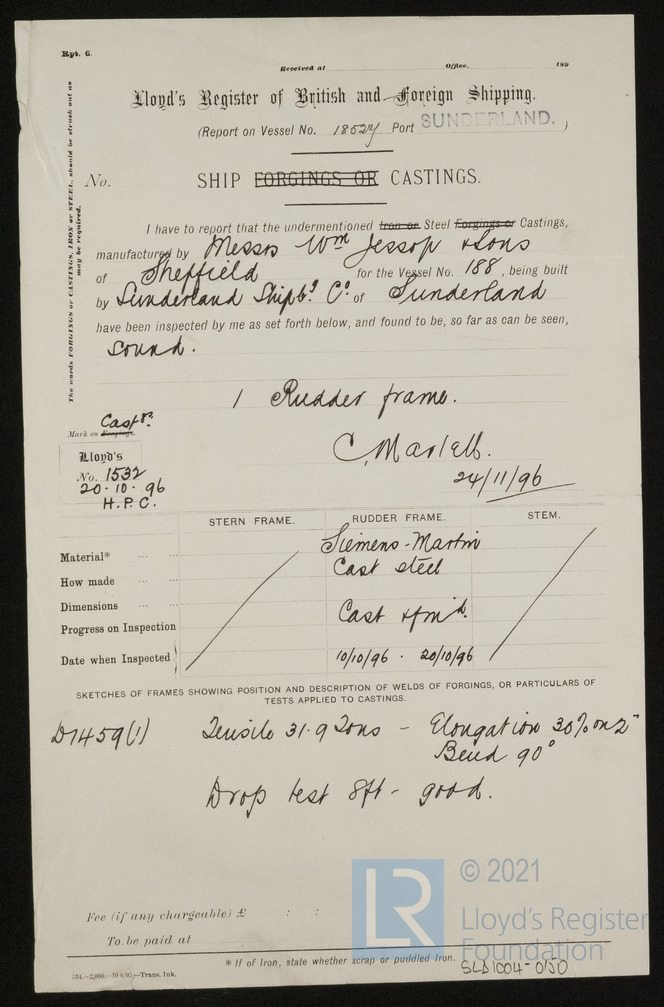 Rpt. 6.
Received at Office, 189
Lloyd's Register of British and Foreign Shipping.
(Report on Vessel No. 18527 Port SUNDERLAND. )
No. SHIP FORGINGS OR CASTINGS.
The words FORGINGS or CASTINGS, IRON or STEEL, should be struck out as
may be required.
I have to report that the undermentioned Iron or Steel Forgings or Castings,
manufactured by Messrs Wm Jessop & Sons
of Sheffield for the Vessel No. 188, being built
by Sunderland Shipbg. Co. of Sunderland
have been inspected by me as set forth below, and found to be, so far as can be seen,
sound.
1 Rudder frame.
Castgs.
Mark on Forgings.
Lloyd's
No. 1532
20-10-96
H.P.C.
C. Martell.
24/11/96
STERN FRAME. RUDDER FRAME. STEM.
Material* ... ... Siemens-Martin
Cast steel
How made ... ...
Dimensions ... ...
Progress on Inspection Cast & fin'd.
Date when Inspected 10/10/96 - 20/10/96
SKETCHES OF FRAMES SHOWING POSITION AND DESCRIPTION OF WELDS OF FORGINGS, OR PARTICULARS OF
TESTS APPLIED TO CASTINGS.
D1459(1) Tensile 31.9 Tons - Elongation 30% on 2"
Bend 90°
Drop test 8ft - good.
Fee (if any chargeable) £ : :
To be paid at
* If of Iron, state whether scrap or puddled Iron.
Trans. Ink.
SLD1004-0150
LR
© 2021
Lloyd's Register
Foundation